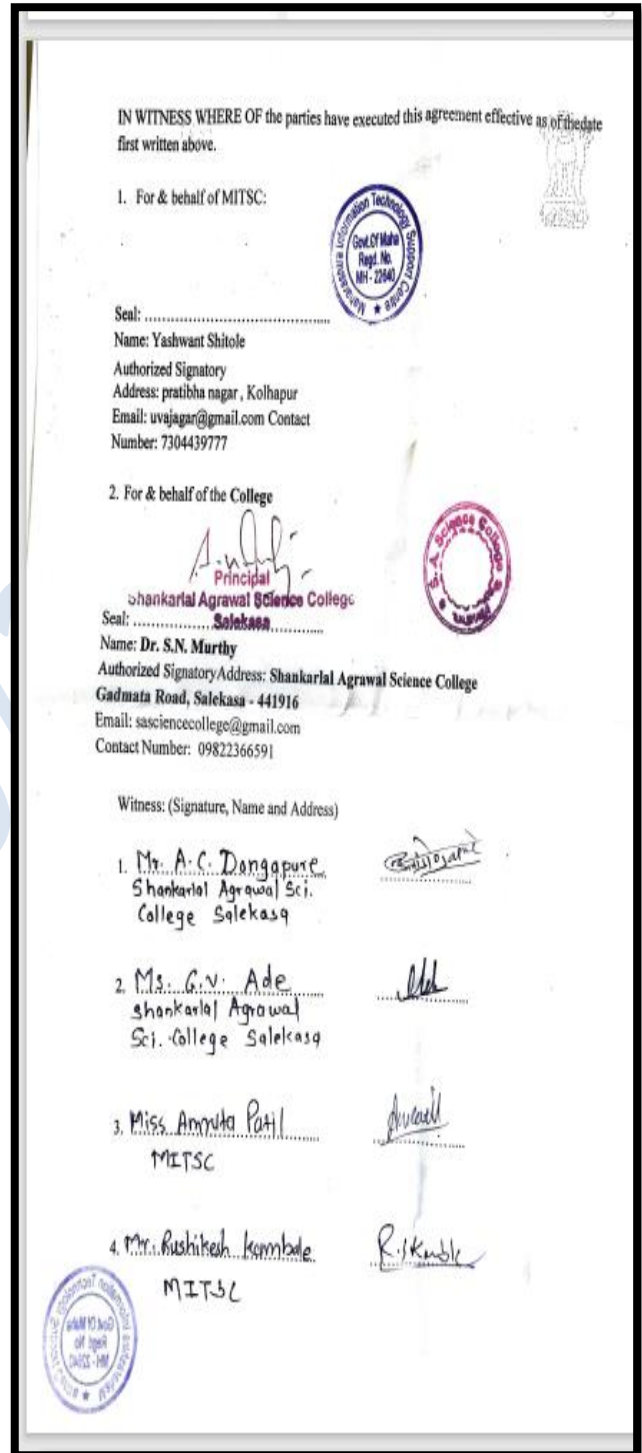 IN WITNESS WHERE OF the parties have executed this agreement effective as of thedate
first written above.
1. For & behalf of MITSC:
Maharashtra Information Technology Support Centre
Govt.Of Maha
Regd. No.
MH - 22640
Seal: ........................................
Name: Yashwant Shitole
Authorized Signatory
Address: pratibha nagar , Kolhapur
Email: uvajagar@gmail.com Contact
Number: 7304439777
2. For & behalf of the College
Principal
Shankarlal Agrawal Science College
Seal: ................Salekasa................
S. A. Science College
Name: Dr. S.N. Murthy
Authorized SignatoryAddress: Shankarlal Agrawal Science College
Gadmata Road, Salekasa - 441916
Email: sasciencecollege@gmail.com
Contact Number: 09822366591
Witness: (Signature, Name and Address)
1. Mr. A. C. Dongapure
Shankarlal Agrawal Sci.
College Salekasa
2. Ms. G. V. Ade
Shankarlal Agrawal
Sci. College Salekasa
3. Miss Amruta Patil
MITSC
4. Mr. Rushikesh Kambale
R.SKamble
MITSC
Maharashtra Information Technology Support Centre
Govt.Of Maha
Regd. No.
MH - 22640